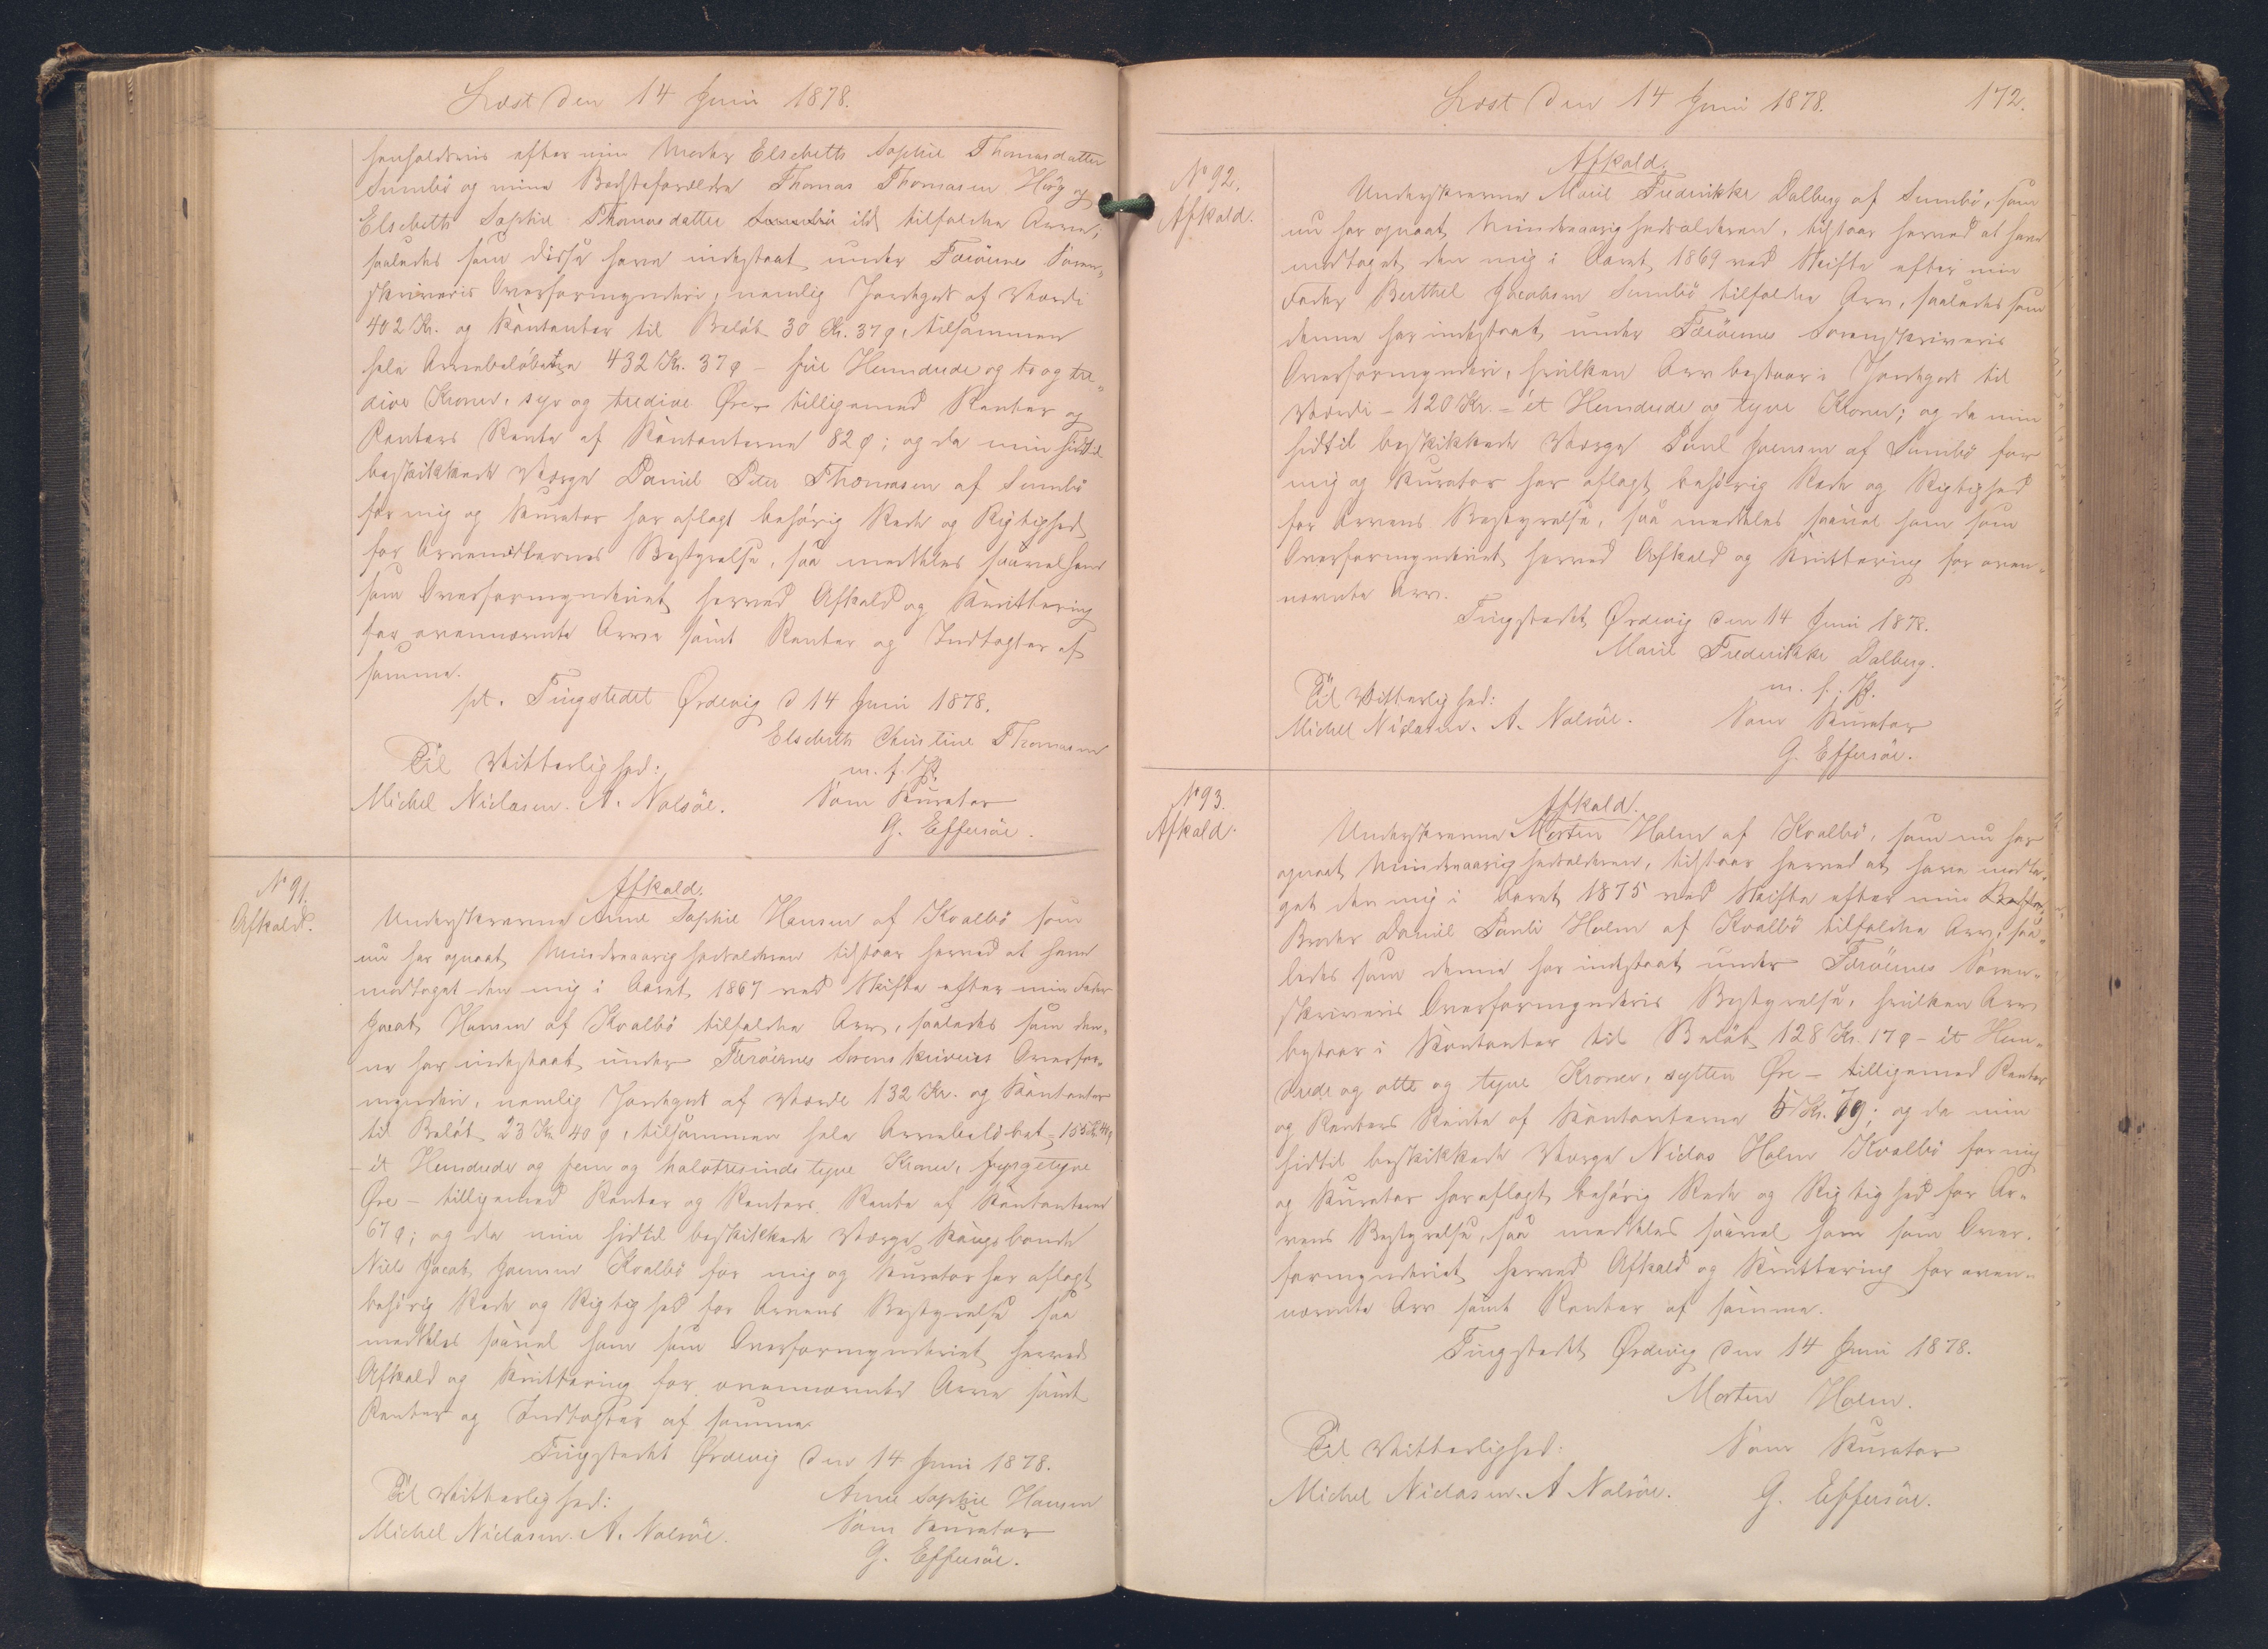 Læst den 14 Juni 1878.
henholdsvis efter min Moder Elsebeth Sophie Thomasdatter
Sumbö og mine Bedsteforældre Thomas Thomasen Høg og
Elsebeth Sophie Thomasdatter Sumbö ibd tilfaldne Arve,
saaledes som disse have indestaaet under Færöernes Soren-
skriveris Overformynderi, nemlig Jordegods af Værdi
402 Kr. og Kontanter til Beløb 30 Kr. 37 ø, tilsammen
hele Arvebeløbene 432 Kr. 37 ø – fire Hundrede og to og tre-
dive Kroner, syv og tredive Øre – tilligemed Renter og
Renters Rente af Kontanterne 82 ø; og da min hidtil
beskikkede Værge Daniel Peter Thomasen af Sumbö
for mig og Kurator har aflagt behörig Rede og Rigtighed
for Arvemidlernes Bestyrelse, saa meddeles saavel ham
som Overformynderiet herved Afkald og Kvittering
for ovennævnte Arve samt Renter og Indtægter af
samme.
pt. Tingstedet Ørdevig d 14 Juni 1878.
Elsebeth Christine Thomasen
m. f. P.
Til Vitterlighed:
Som Kurator
Michel Niclasen. A. Nolsöe.
G. Effersöe.
No 91.
Afkald.
Afkald.
Underskrevne Anne Sophie Hansen af Kvalbö som
nu har opnaaet Mindreaarighedsalderen tilstaar herved at have
modtaget den mig i Aaret 1867 ved Skifte efter min Fader
Jacob Hansen af Kvalbö tilfaldne Arv, saaledes som den-
ne har indestaaet under Færöernes Sorenskriveris Overfor-
mynderi, nemlig Jordegods af Værdi 132 Kr. og Kontanter
til Beløb 23 Kr 40 ø, tilsammen hele Arvebeløbet = 155 Kr 40 ø
– ét Hundrede og fem og halvtresinds tyve Kroner, fyrgetyve
Øre – tilligemed Renter og Renters Rente af Kontanterne
67 ø; og da min hidtil beskikkede Værge Kongsbonde
Niels Jacob Joensen Kvalbö for mig og Kurator har aflagt
behörig Rede og Rigtighed for Arvens Bestyrelse saa
meddeles saavel ham som Overformynderiet herved
Afkald og Kvittering for ovennævnte Arv samt
Renter og Indtægter af samme
Tingstedet Ørdevig den 14 Juni 1878.
Til Vitterlighed:
Anne Sophie Hansen
Michel Niclasen. A. Nolsöe.
Som Kurator
G. Effersöe.
Læst den 14 Juni 1878.
172.
No 92.
Afkald.
Afkald.
Underskrevne Marie Frederikke Dalberg af Sumbö, som
nu har opnaaet Mindreaarighedsalderen, tilstaar herved at have
modtaget den mig i Aaret 1869 ved Skifte efter min
Fader Berthel Jacobsen Sumbö tilfaldne Arv, saaledes som
denne har indestaaet under Færöernes Sorenskriveris
Overformynderi, hvilken Arv bestaar i Jordegods til
Værdi – 120 Kr. – ét Hundrede og tyve Kroner; og da min
hidtil beskikkede Værge Poul Joensen af Sumbö for
mig og Kurator har aflagt behörig Rede og Rigtighed
for Arvens Bestyrelse, saa meddeles saavel ham som
Overformynderiet herved Afkald og Kvittering for oven-
nævnte Arv.
Tingstedet Ørdevig den 14 Juni 1878.
Marie Frederikke Dalberg.
m. f. P.
Til Vitterlighed:
Michel Niclasen. A. Nolsöe.
Som Kurator
G. Effersöe.
No 93.
Afkald.
Afkald.
Underskrevne Morten Holm af Kvalbö, som nu har
opnaaet Mindreaarighedsalderen, tilstaar herved at have modta-
get den mig i Aaret 1875 ved Skifte efter min
Broder Daniel Pauli Holm af Kvalbö tilfaldne Arv, saa-
ledes som denne har indestaaet under Færöernes Soren-
skriveris Overformynderis Bestyrelse, hvilken Arv
bestaar i Kontanter til Beløb 128 Kr. 17 ø – ét Hun-
drede og otte og tyve Kroner, sytten Øre – tilligemed Renter
og Renters Rente af Kontanterne 5 Kr. 7 ø; og da min
hidtil beskikkede Værge Niclas Holm Kvalbö for mig
og Kurator har aflagt behörig Rede og Rigtighed for Ar-
vens Bestyrelse, saa meddeles saavel ham som Over-
formynderiet herved Afkald og Kvittering for oven-
nævnte Arv samt Renter af samme.
Tingstedet Ørdevig den 14 Juni 1878.
Morten Holm.
Til Vitterlighed:
Som Kurator
Michel Niclasen. A Nolsöe.
G. Effersöe.